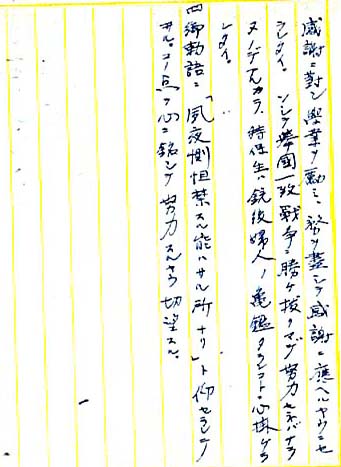 感謝ニ對シ學業ヲ勵ミ、務ヲ盡シテ感謝ニ應ヘルヤウニセ
ラレタイ。ソシテ擧國一致戰爭ニ勝チ拔クマデ努力セネバナラ
ヌノデアルカラ、特ニ生ハ銃後婦人ノ龜鑑タランコトニ心掛ケラ
レタイ。
四、御勅語ニ「夙夜惻怛禁スル能ハサル所ナリ」ト仰セラレテ
ヰル。コノ点ヲ心ニ銘シテ努力スルヤウ切望スル。